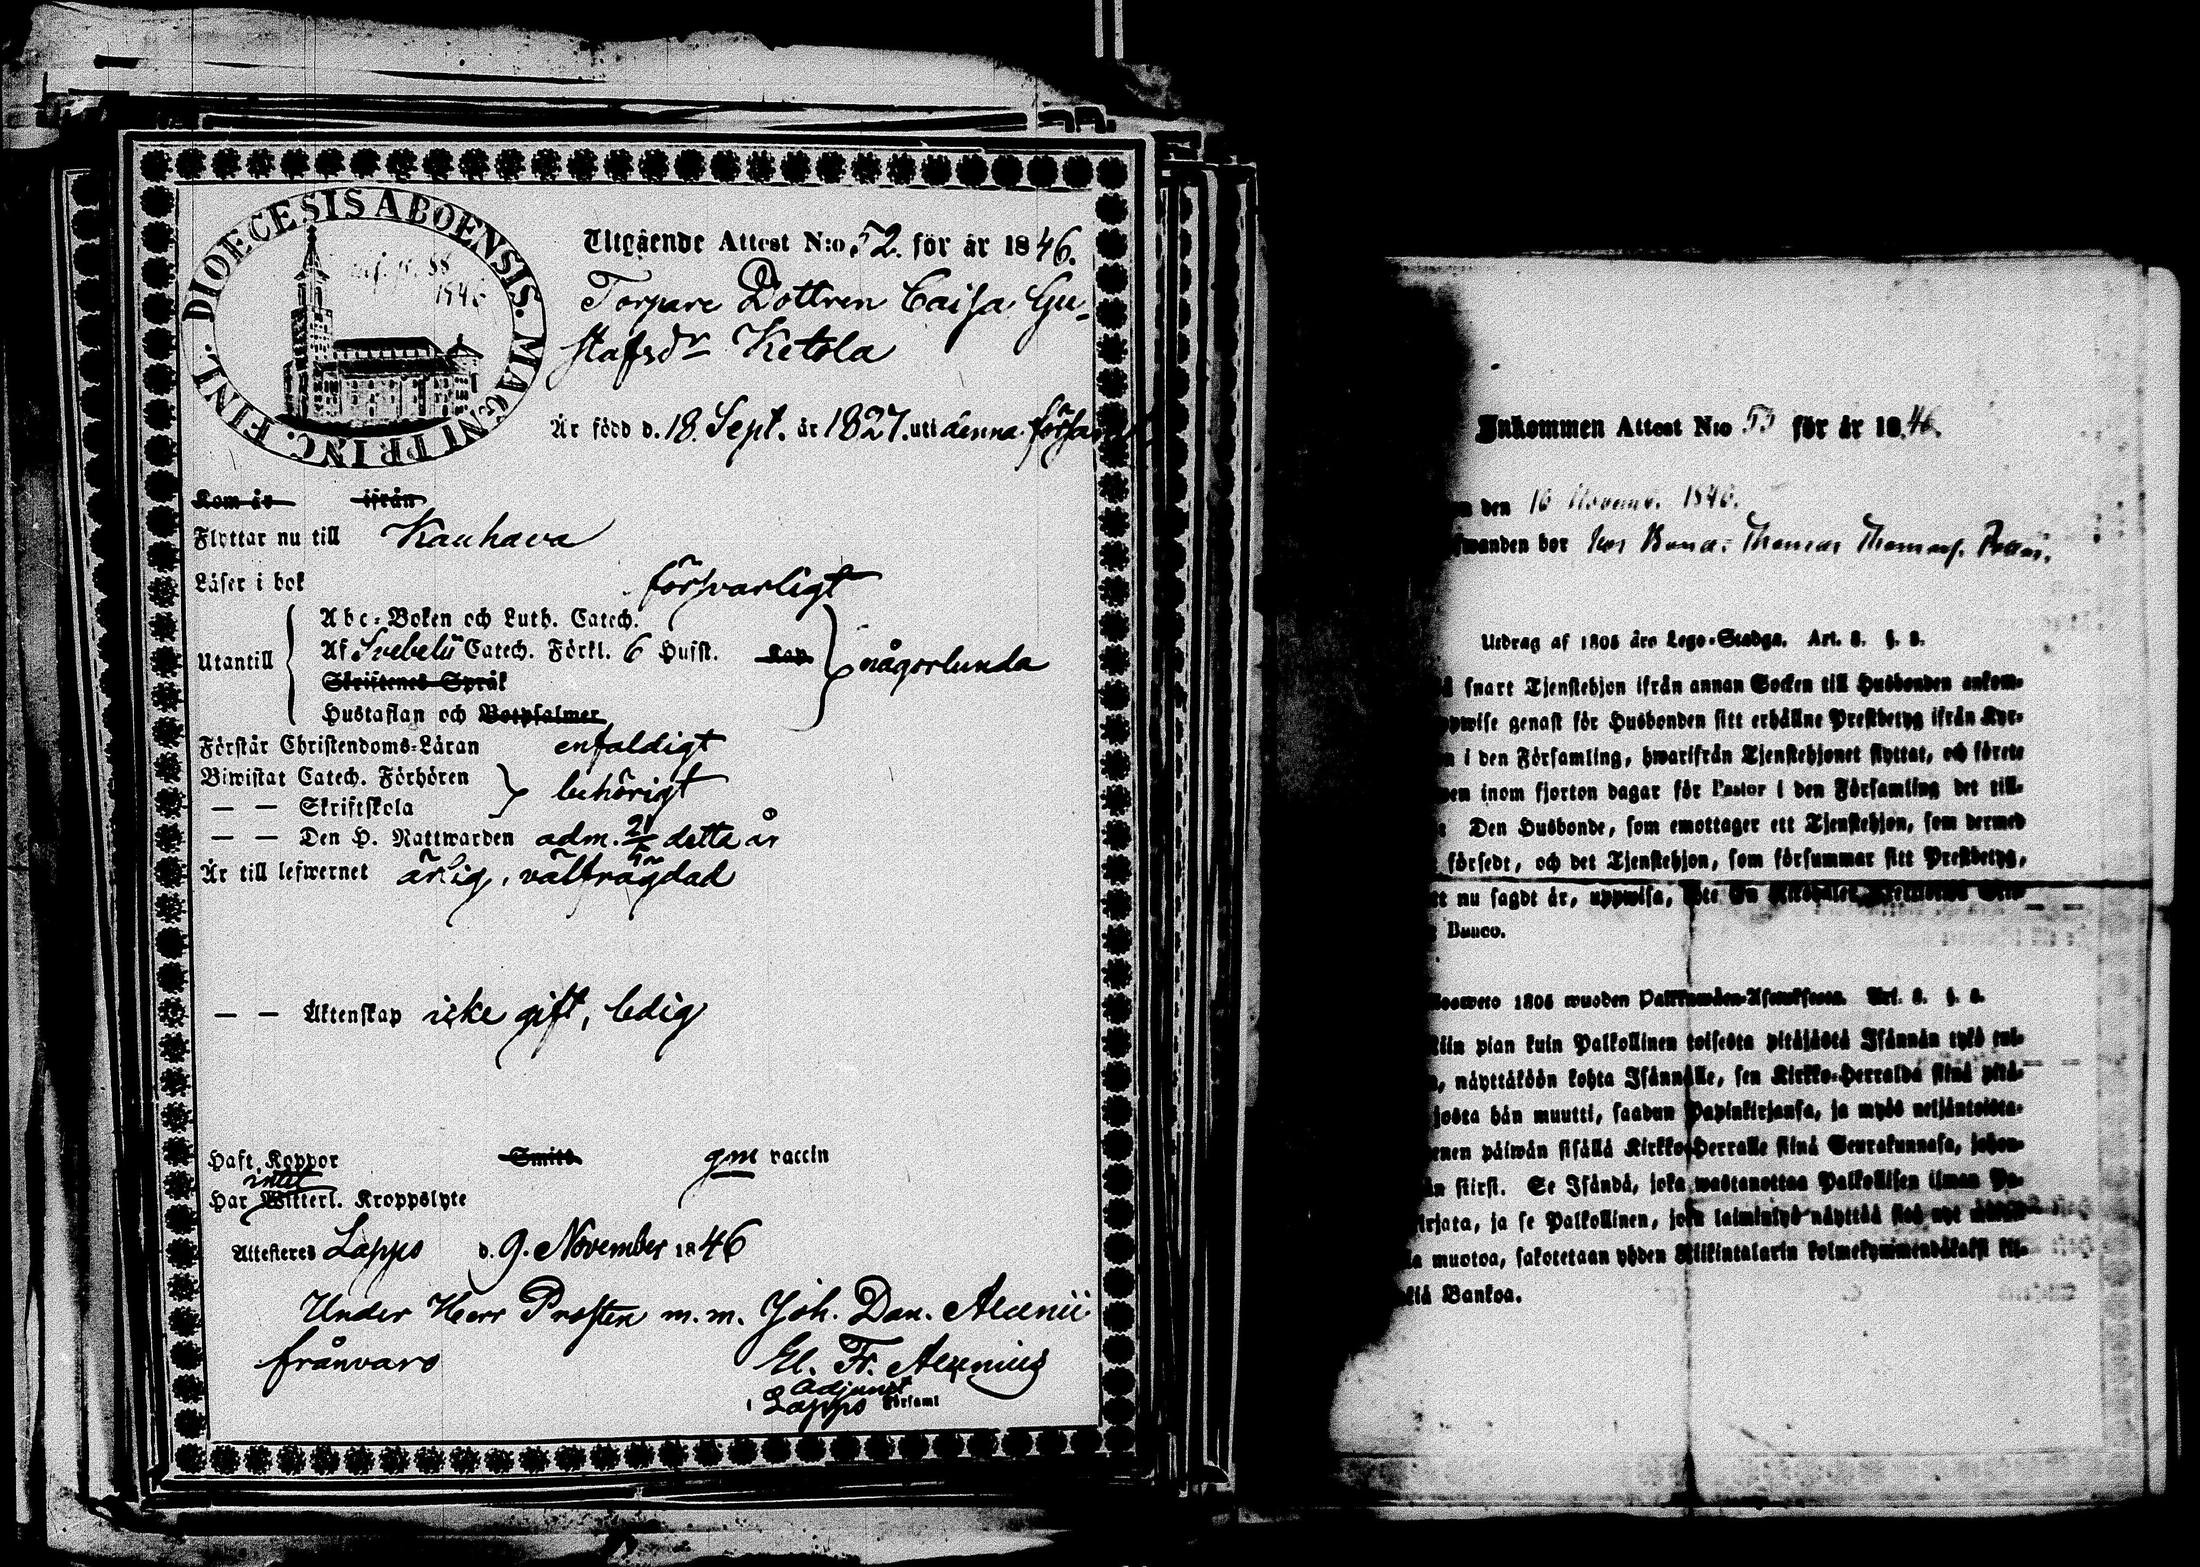 DIOECESIS ABOENSIS. MAGNI PRINC. FINL.
1846
Utgående Attest N:o 52. för år 1846.
Torpare Dottren Caisa Gu-
stafsdr Ketola
Är född d. 18. Sept. år 1827. uti denna försa
Kom år ifrån
Flyttar nu till Kauhava
Läser i bok försvarligt
Abc-Boken och Luth. Catech.
Utantill Af Svebelii Catech. Förkl. 6 Hufst. Kap. någorlunda
Skriftenes Språk
Hustaflan och Botpsalmer
Förstår Christendoms-Läran enfaldigt
Biwistat Catech. Förhören behörigt
— — Skriftskola
— — Den H. Nattwarden adm. detta år
Är till lefwernet ärlig, välfrägdad
— — Äktenskap icke gift, ledig
Haft Koppor Smitt. gm vaccin
intet
Har Witterl. Kroppslyte
Attesteres Lappo d. 9. November 1846
Under Herr Prosten m.m. Joh. Dan. Alcenii
frånvaro El. Fr. Alcenius
Adjunct
i Lappo Församl
Inkommen Attest N:o 53 för år 1846.
den 16 Novemb. 1846.
wanden bor hos Thomas Thomass.
Utdrag af 1805 års Lego-Stadga. Art. 8. §. 8.
snart Tjenstehjon ifrån annan Socken till Husbonden ankom-
pwise genast för Husbonden sitt erhållne Prestbetyg ifrån Kyr-
i den Församling, hwarifrån Tjenstehjonet flyttat, och förete
en inom fjorton dagar för Pastor i den Församling det till-
Den Husbonde, som emottager ett Tjenstehjon, som dermed
försedt, och det Tjenstehjon, som försummar sitt Prestbetyg,
nu sagdt är, uppwisa,
Banco.
1805 wuoden Palkkawäen-Asetuksesta. Art. 8. §. 8.
Niin pian kuin Palkollinen toisesta pitäjästä Isännän tykö tul-
näyttäköön kohta Isännälle, sen Kirkko-Herralda siinä pitä-
josta hän muutti, saadun Papinkirjansa, ja myös neljäntoista-
enen päiwän sisällä Kirkko-Herralle siinä Seurakunnasa, johon-
än siirst. Se Isändä, joka wastanottaa Palkollisen ilman Pa-
irjata, ja se Palkollinen, joka laiminlyö näyttää sitä nyt
muotoa, sakotetaan yhden Rikintalarin kolmekymmendäkaksi kil-
Bankoa.